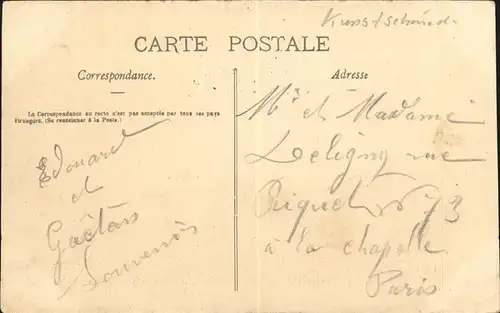 Kunst/schmied.
CARTE POSTALE
Correspondance.
Adresse
La Correspondance au recto n'est pas acceptée par tous les pays
étrangers. (Se renseigner à la Poste).
Edouard
et
Gaëtan
Souvenirs
Mr et Madame
Deligny rue
Riquet no 73
à la chapelle
Paris